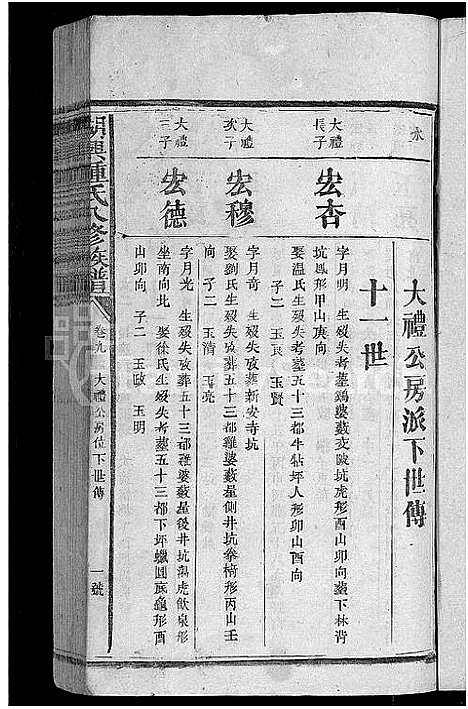 永
大禮公房派下世傳
十一世
大禮長子
宏杏
字月明 生歿失考墓鷄婆藪交跛坑虎形酉山卯向墓下林背
坑鳳形甲山庚向
娶温氏生歿失考墓五十三都牛牯坪人形卯山酉向
子二 玉良 玉賢
大禮次子
宏穆
字月奇 生歿失攷葬新安寺坑
娶劉氏生歿失攷葬五十三都雞婆藪屋側井坑拳椅形丙山壬
向 子二 玉清 玉亮
大禮三子
宏德
字月光 生歿失攷葬五十三都雞婆藪屋後井坑渴虎飲泉形
坐南向北 娶徐氏生歿失考墓五十三都下坪蠟圓底龜形酉
山卯向 子二 玉歐 玉明
興鍾氏八修族譜
卷九
大禮公房位下世傳
一號